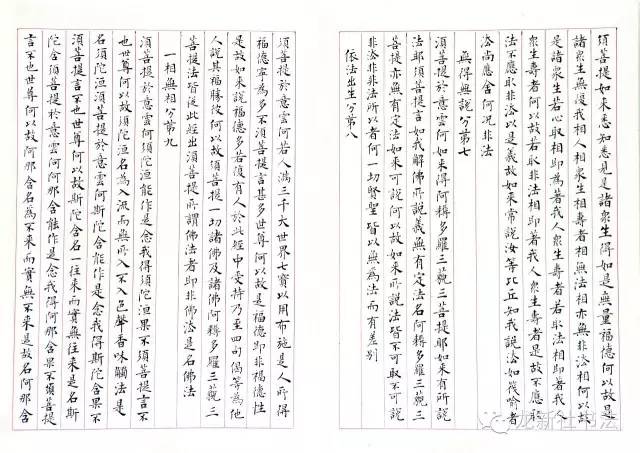 須菩提如来悉知悉見是諸衆生得如是無量福德何以故是
諸衆生無復我相人相衆生相壽者相無法相亦無非法相何以故
是諸衆生若心取相即為著我人衆生壽者若取法相即著我人
衆生壽者何以故若取非法相即著我人衆生壽者是故不應取
法不應取非法以是義故如来常説汝等比丘知我説法如筏喻者
法尚應舍何况非法
無得無説分第七
須菩提於意云何如来得阿耨多羅三藐三菩提耶如来有所説
法耶須菩提言如我解佛所説義無有定法名阿耨多羅三藐三
菩提亦無有定法如来可説何以故如来所説法皆不可取不可説
非法非非法所以者何一切賢聖皆以無為法而有差别
依法出生分第八
須菩提於意云何若人满三千大世界七寳以用布施是人所得
福德寧為多不須菩提言甚多世尊何以故是福德即非福德性
是故如来説福德多若復有人於此經中受持乃至四句偈等為他
人説其福勝彼何以故須菩提一切諸佛及諸佛阿耨多羅三藐三
菩提法皆從此經出須菩提所謂佛法者即非佛法是名佛法
一相無相分第九
須菩提於意云何須陀洹能作是念我得須陀洹果不須菩提言不
也世尊何以故須陀洹名為入流而無所入不入色聲香味觸法是
名須陀洹須菩提於意云何斯陀含能作是念我得斯陀含果不
須菩提言不也世尊何以故斯陀含名一往来而實無往来是名斯
陀含須菩提於意云何阿那含能作是念我得阿那含果不須菩提
言不也世尊何以故阿那含名為不来而實無不来是故名阿那含
龙新社书法